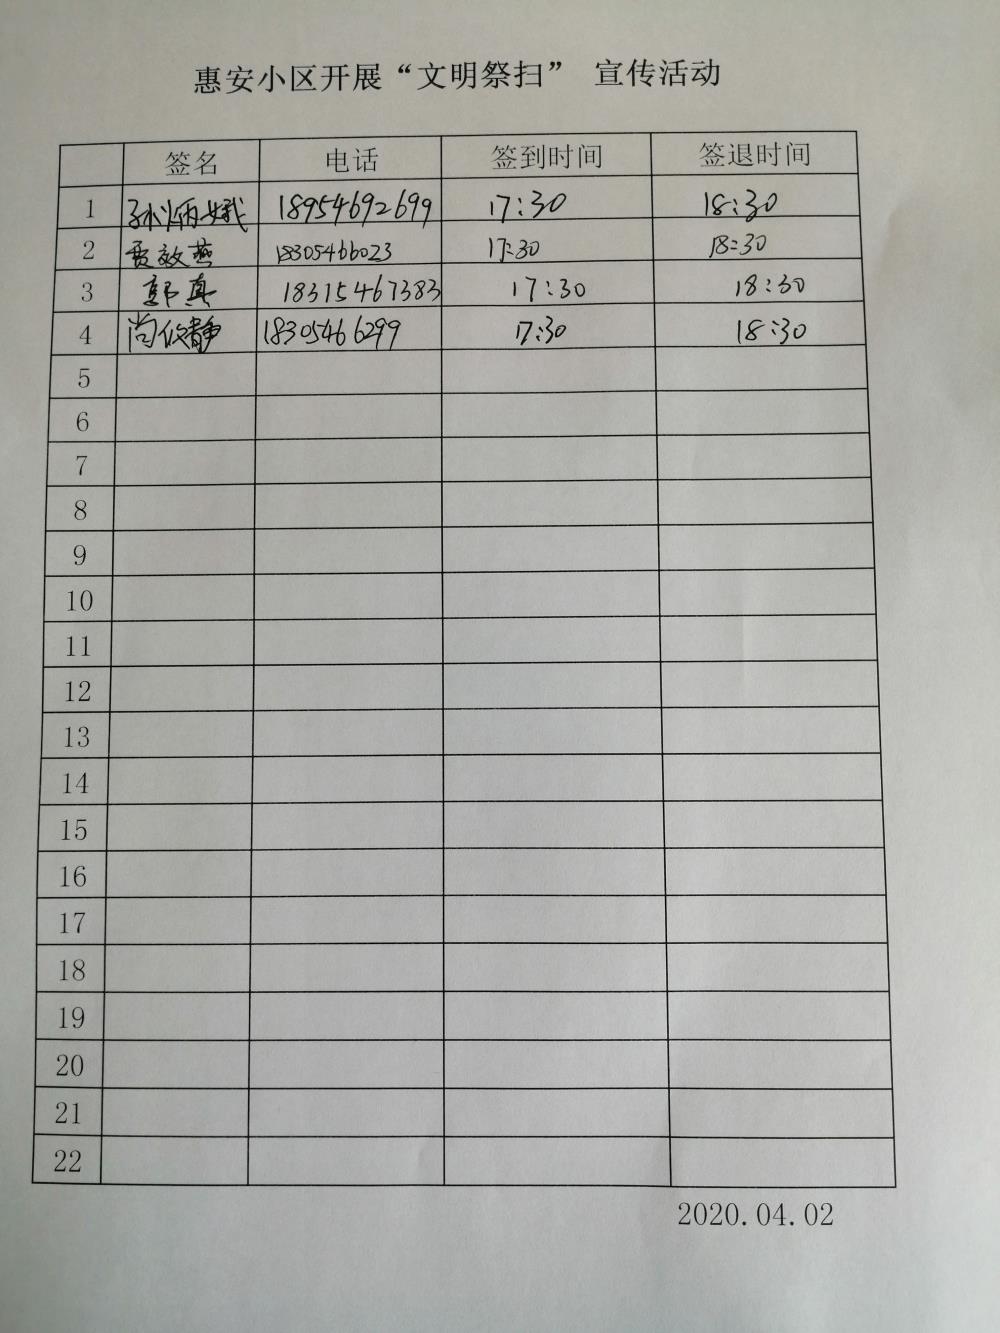 惠安小区开展“文明祭扫” 宣传活动
签名 电话 签到时间 签退时间
1 孙炳娥 18954692699 17:30 18:30
2 贾效燕 18305466023 17:30 18:30
3 郭真 18315467383 17:30 18:30
4 尚 静 18305466299 17:30 18:30
5
6
7
8
9
10
11
12
13
14
15
16
17
18
19
20
21
22
2020.04.02